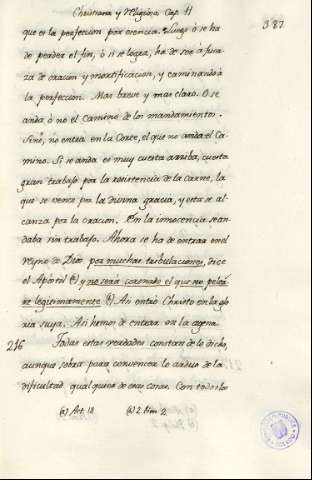 Christiana y Magica Cap. 11
387
que es la perfeccion por esencia. Luego ó se ha
de perder el fin, ó si se logra, ha de ser á fuer
za de oracion y mortificacion, y caminando á
la perfeccion. Mas breve y mas claro. O se
anda ó no el Camino de los mandamientos.
Si no, no entra en la Corte, el que no anda el Ca
mino. Si se anda es muy cuesta arriba, cuesta
gran trabajo por la resistencia de la carne, la
que se vence por la divina gracia, y esta se al
canza por la oracion. En la innocencia se an
daba sin trabajo. Ahora se ha de entrar en el
reyno de Dios por muchas tribulaciones, dice
el Apóstol (a) y no será coronado el que no pelea
re legitimamente (a) Asi entró Christo en la glo
ria suya. Asi hemos de entrar en la agena.
216 Todas estas verdades constan de lo dicho,
aunque sobra para convencer lo arduo de la
dificultad qualquiera de esas cosas. Con todo los
(a) Act. 14 (a) 2. Tim. 2.